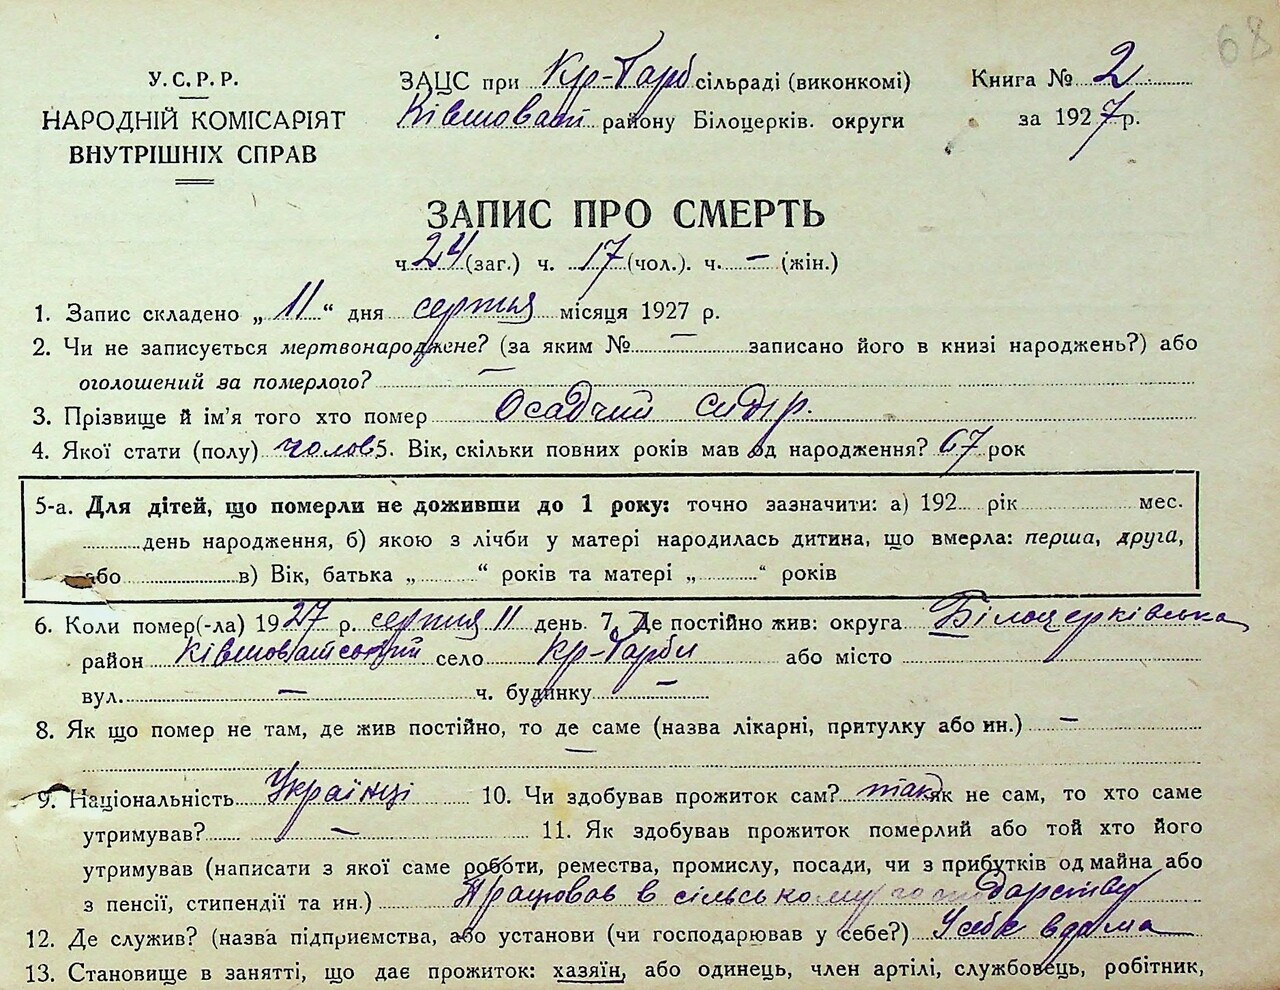 68
У.С.Р.Р.
НАРОДНІЙ КОМІСАРІЯТ
ВНУТРІШНІХ СПРАВ
ЗАЦС при Кр-Гарб сільраді (виконкомі)
Ківшоват району Білоцерків. округи
Книга № 2
за 1927 р.
ЗАПИС ПРО СМЕРТЬ
ч. 24 (заг.) ч. 17 (чол.). ч. — (жін.)
1. Запис складено „ 11 “ дня серпня місяця 1927 р.
2. Чи не записується мертвонароджене? (за яким № — записано його в книзі народжень?) або
оголошений за померлого? —
3. Прізвище й ім'я того хто помер Осадчий Сидір.
4. Якої стати (полу) чолов 5. Вік, скільки повних років мав од народження? 67 рок
5-а. Для дітей, що померли не доживши до 1 року: точно зазначити: а) 192 рік мес.
день народження, б) якою з лічби у матері народилась дитина, що вмерла: перша, друга,
або в) Вік, батька „ “ років та матері „ “ років
6. Коли помер(-ла) 1927 р. серпня 11 день. 7. Де постійно жив: округа Білоцерківська
район Ківшоватський село Кр-Гарби або місто
вул. — ч. будинку —
8. Як що помер не там, де жив постійно, то де саме (назва лікарні, притулку або ин.) —
—
9. Національність Українці 10. Чи здобував прожиток сам? так як не сам, то хто саме
утримував? — 11. Як здобував прожиток померлий або той хто його
утримував (написати з якої саме роботи, ремества, промислу, посади, чи з прибутків од майна або
з пенсії, стипендії та ин.) Працював в сільському господарству
12. Де служив? (назва підприємства, або установи (чи господарював у себе?) У себе вдома
13. Становище в занятті, що дає прожиток: хазяїн, або одинець, член артілі, службовець, робітник,